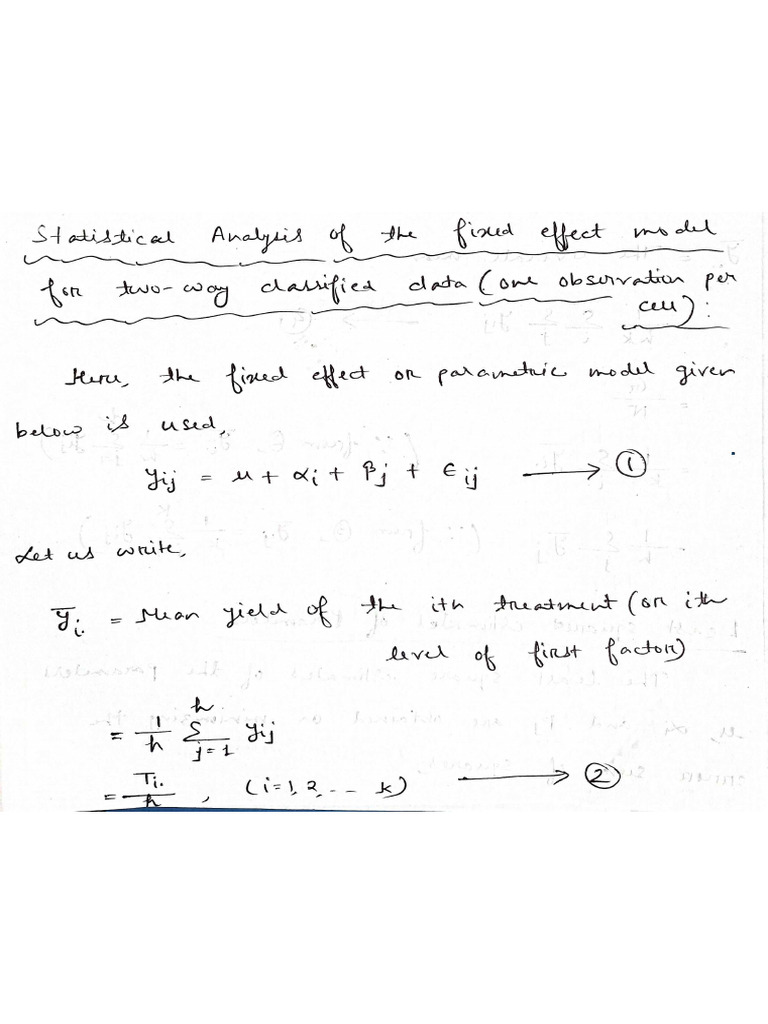 Statistical Analysis of the fixed effect model
for two-way classified data (one observation per
cell):
Here, the fixed effect or parametric model given
below is used,
yij = μ + αi + βj + ϵij ⟶ ①
Let us write,
ȳi. = Mean yield of the ith treatment (or ith
level of first factor)
= 1/h Σ_{j=1}^{h} yij
= Ti./h , (i=1, 2, ... k) ⟶ ②